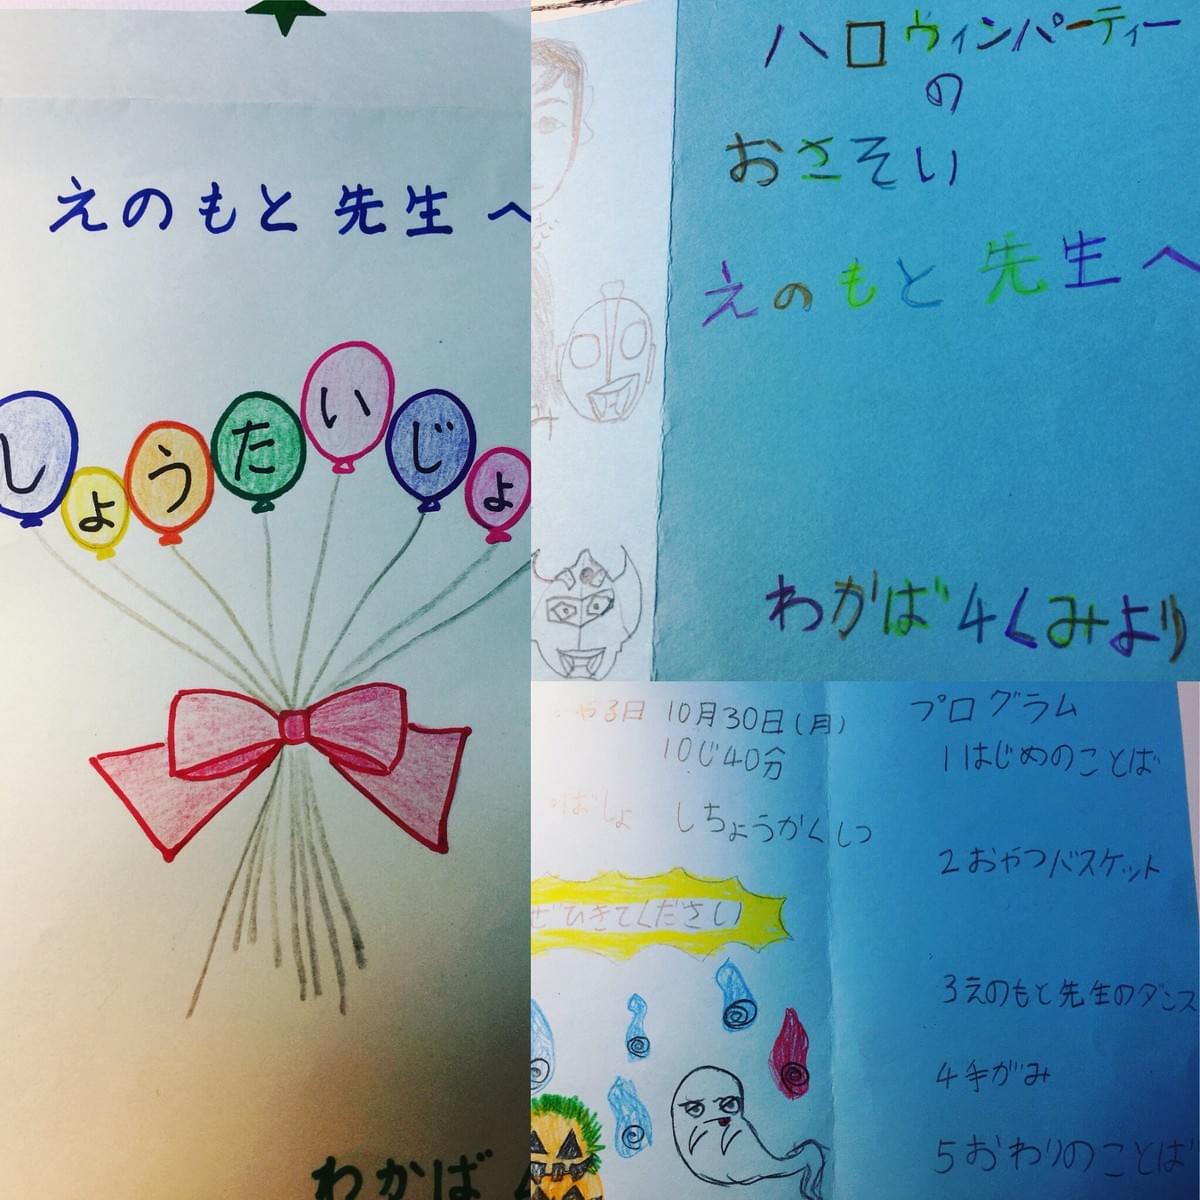 えのもと先生へ
しょうたいじょ
わかば
ハロウィンパーティー
の
おさそい
えのもと先生へ
わかば4くみより
やる日 10月30日(月)
10じ40分
ばしょ しちょうかくしつ
ぜひきてください
プログラム
1はじめのことば
2おやつバスケット
3えのもと先生のダンス
4手がみ
5おわりのことば